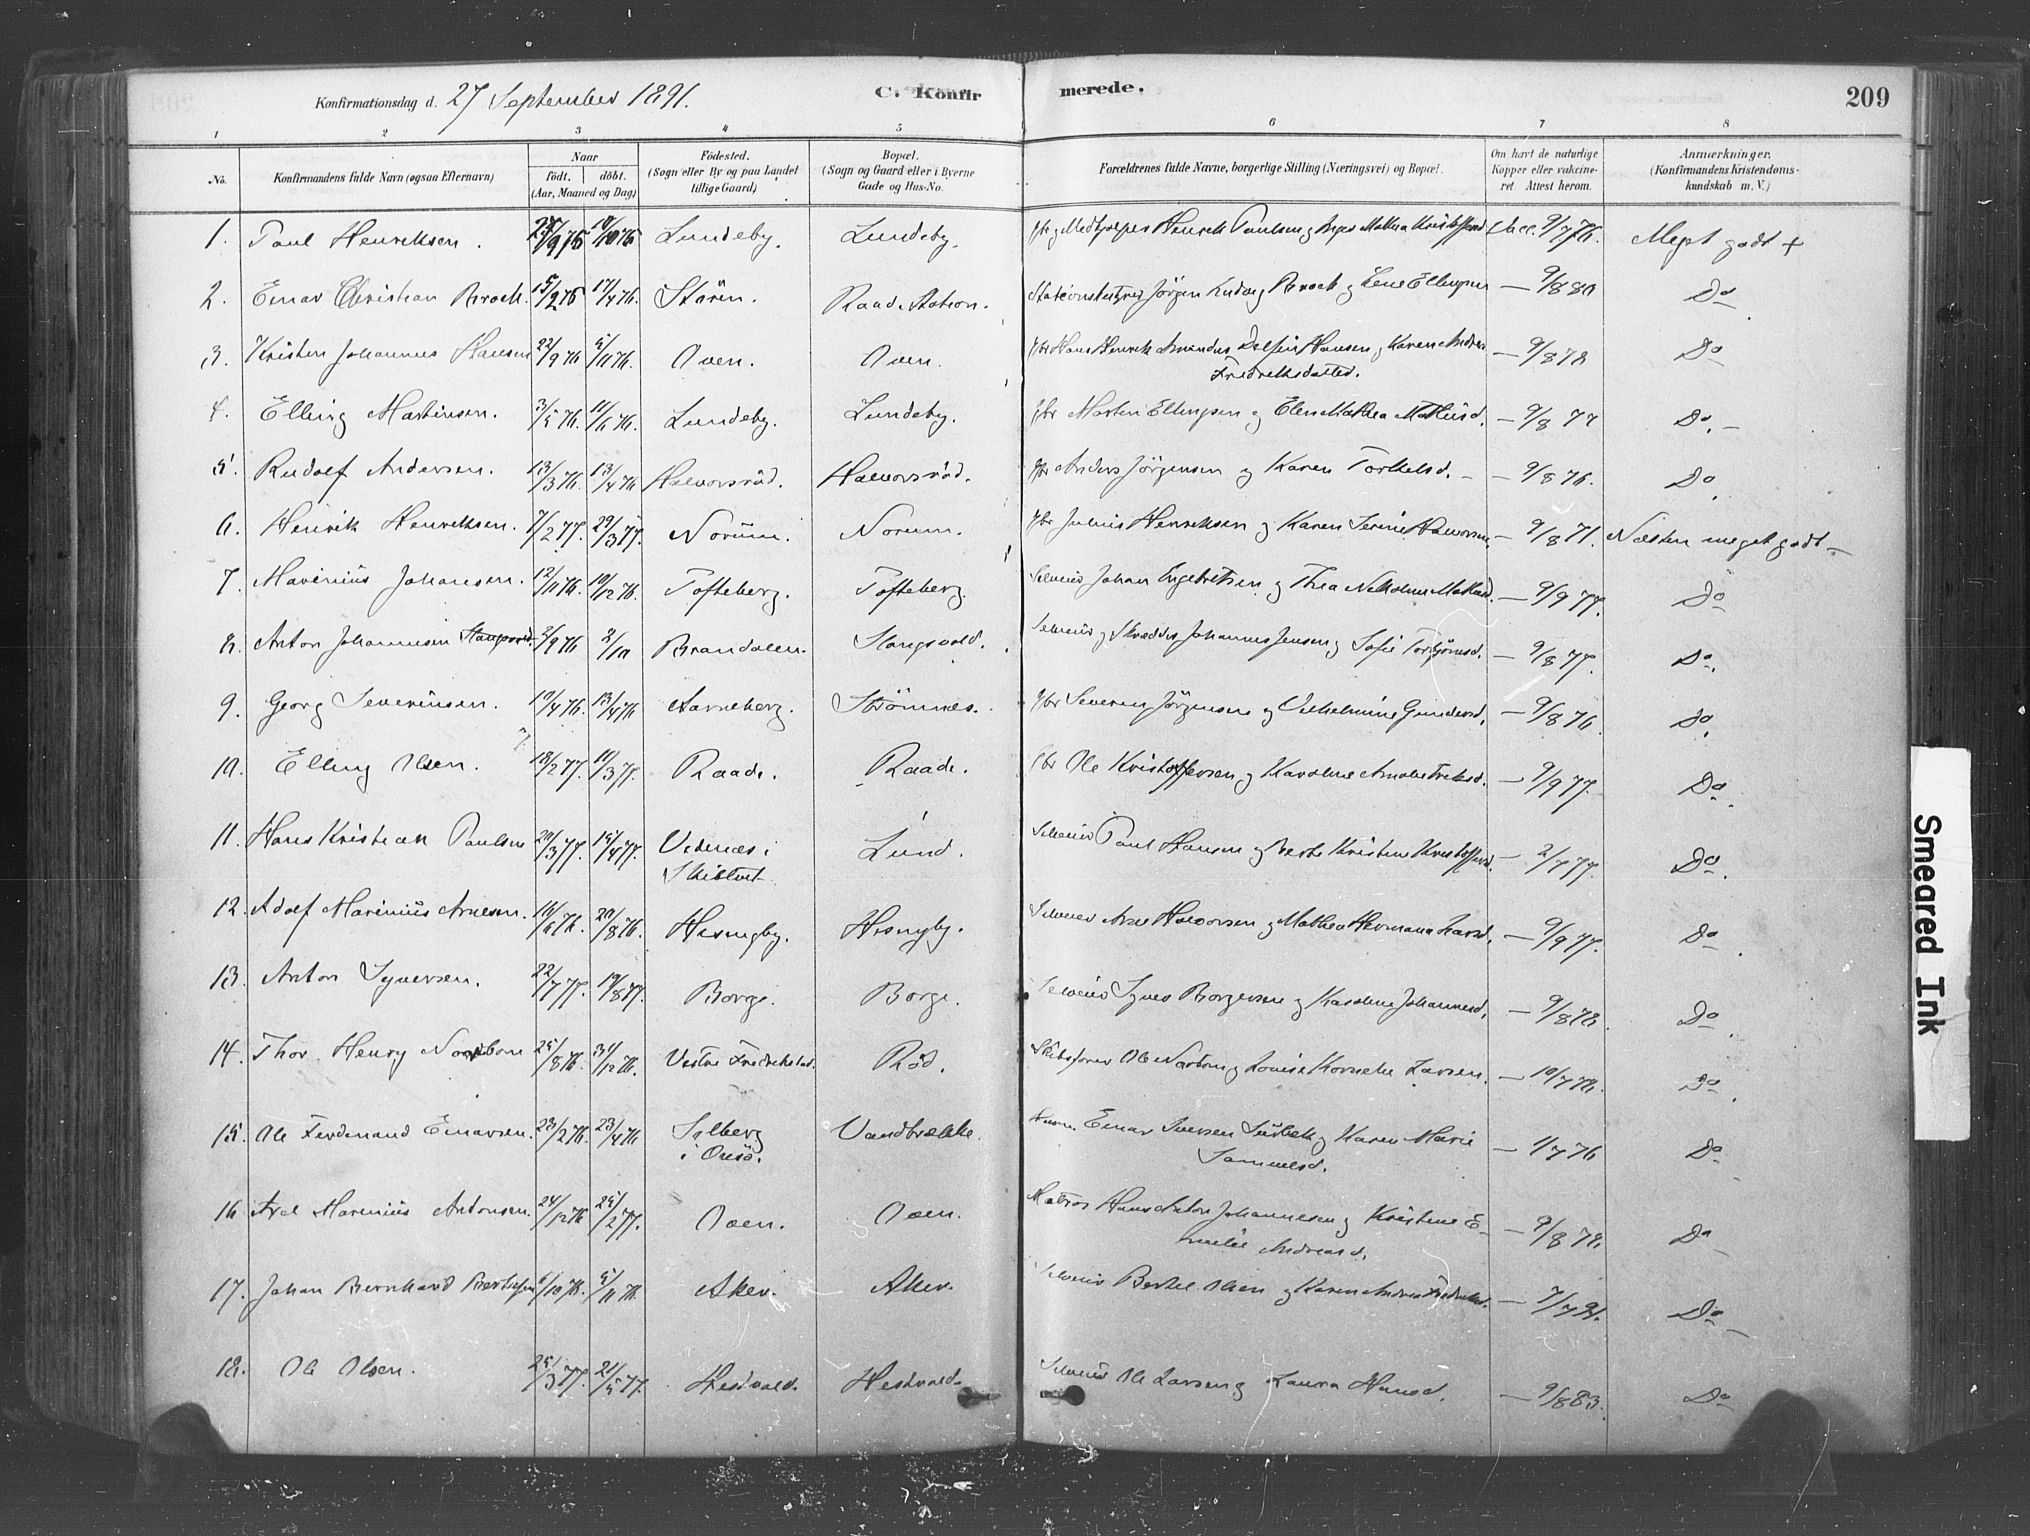 Konfirmationsdag d. 27 September 1891. C. Konfirmerede. 209
1 2 3 4 5 6 7 8
No. Konfirmandens fulde Navn (ogsaa Efternavn) Naar födt. döbt. (Aar, Maaned og Dag) Födested. (Sogn eller By og paa Landet tillige Gaard) Bopæl. (Sogn og Gaard eller i Byerne Gade og Hus-No. Forældrenes fulde Navne, borgerlige Stilling (Næringsvei) og Bopæl. Om havt de naturlige Kopper eller vakcineret Attest herom. Anmærkninger. (Konfirmandens Kristendomskundskab m. V.)
1. Paul Henriksen. Lundeby. Lundeby. Henrik Paulsen og Mathea 9/7 76. Meget godt +
2. Einar Christian Broch. 15/2 76 17/4 76. Stören. Raade Station. Jörgen Ludvig Broch og Lene Ellingsen — 9/8 80 Do
3. Kristen Johannes Hansen 22/9 76 5/11 76. Oven. Oven. Gbr Hans Henrik Amandus Delfin Hansen og Karen Andrea Fredriksdatter. — 9/8 78 Do
4. Elling Martinsen. 3/5 76. 11/6 76. Lundeby. Lundeby. Gbr Martin Ellingsen og Elen Mathea — 9/8 77 Do. —
5. Rudolf Andersen. 13/3 76. 13/4 76 Halvorsröd. Halvorsröd. Gbr Anders Jörgensen og Karen Torkelsd. — 9/8 76. Do.
6. Henrik Henriksen. 7/2 77. 29/3 77. Norum. Norum. Gbr Julius Henriksen og Karen Serine Halvorsen. — 9/8 71. Næsten meget godt —
7. Marinius Johansen. 12/11 76. 10/12 76. Tofteberg. Tofteberg. Selveier Johan Engebretsen og Thea — 9/9 77. Do
8. Anton Johannesen 2/9 76 2/10 Brandalen. Slangsvold. Selveier og Skrædder Johannes Jensen og Sofie Torbjörnsd. — 9/8 77. Do.
9. Georg Severinsen. 13/4 76 Aarneberg. Strömnes. Gbr Severin Jörgensen og Vilhelmine Gundersd. — 9/8 76 Do.
10. Elling Olsen. 18/2 77. 11/3 77. Raade. Raade. Gbr Ole Kristoffersen og Karoline — 9/9 77. Do.
11. Hans Kristian Paulsen 20/3 77. 15/4 77. i Skibtvet Lund. Selveier Paul Hansen og Berte Kristine Kristoffersd. — 2/7 77. Do.
12. Adolf Marinius Arnesen. 16/6 76. 20/8 76. Selveier Arne Halvorsen og Mathea Hermana Larsd. — 9/9 77. Do.
13. Anton Syversen. 22/7 77. 19/8 77. Borge. Borge. Selveier Syver Borgersen og Karoline Johannesd. — 9/8 78. Do.
14. Thor Henry Nordbom 25/8 76. 31/12 76. Vestre Fredrikstad. Röd. Skibsförer Ole og Louise Kornelie Larsen. — 10/7 78. Do.
15. Ole Ferdinand Einarsen. 23/2 76. 23/4 76 i Onsö. Vandbrække. Einar Iversen og Karen Marie Samuelsd. — 1/7 76 Do
16 Axel Marinius Antonsen. 24/12 76 25/2 77. Oven. Oven. Matros Hans Anton Johannesen og Kristine Emilie Andreasd. — 9/8 78. Do
17. Johan Bernhard Bertelsen 6/10 76. 5/11 76. Aker. Aker. Selveier Bertel Olsen og Karen Andrea Fredriksd. — 7/7 91. Do —
18. Ole Olsen. 25/3 77. 21/5 77. Hestvold. Hestvold. Selveier Ole Larsen og Laura Hansd. — 9/8 83. Do
Smeared Ink